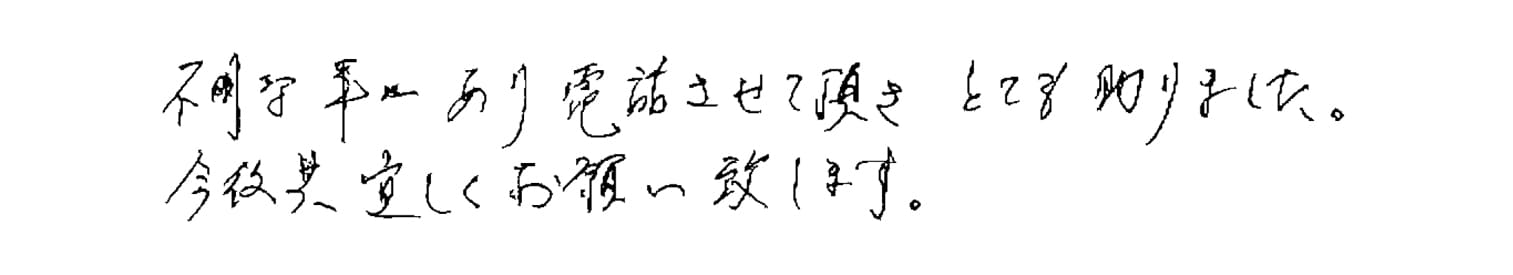 不明な事があり電話させて頂きとても助りました。
今後共宜しくお願い致します。